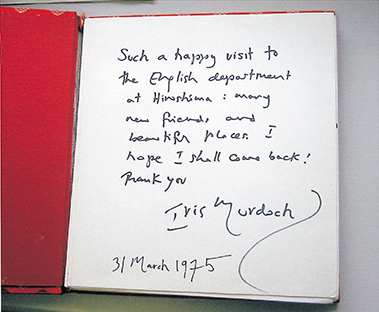 Such a happy visit to
the English department
at Hiroshima : many
new friends and
beautiful places. I
hope I shall come back!
Thank you
Iris Murdoch
31 March 1975